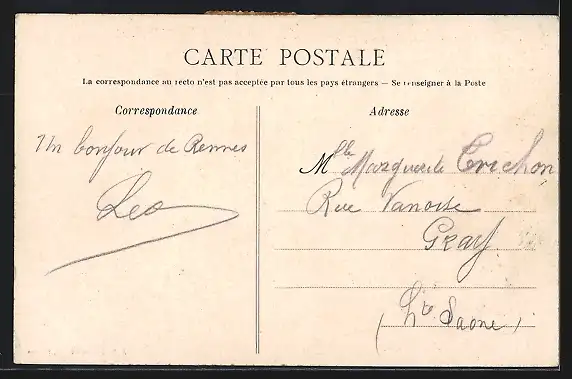 CARTE POSTALE
La correspondance au recto n'est pas acceptée par tous les pays étrangers — Se renseigner à la Poste
Correspondance
Un bonjour de Rennes
Leo
Adresse
Mlle Marguerite Crichon
Rue Vanoise
Gray
(Hte Saone)